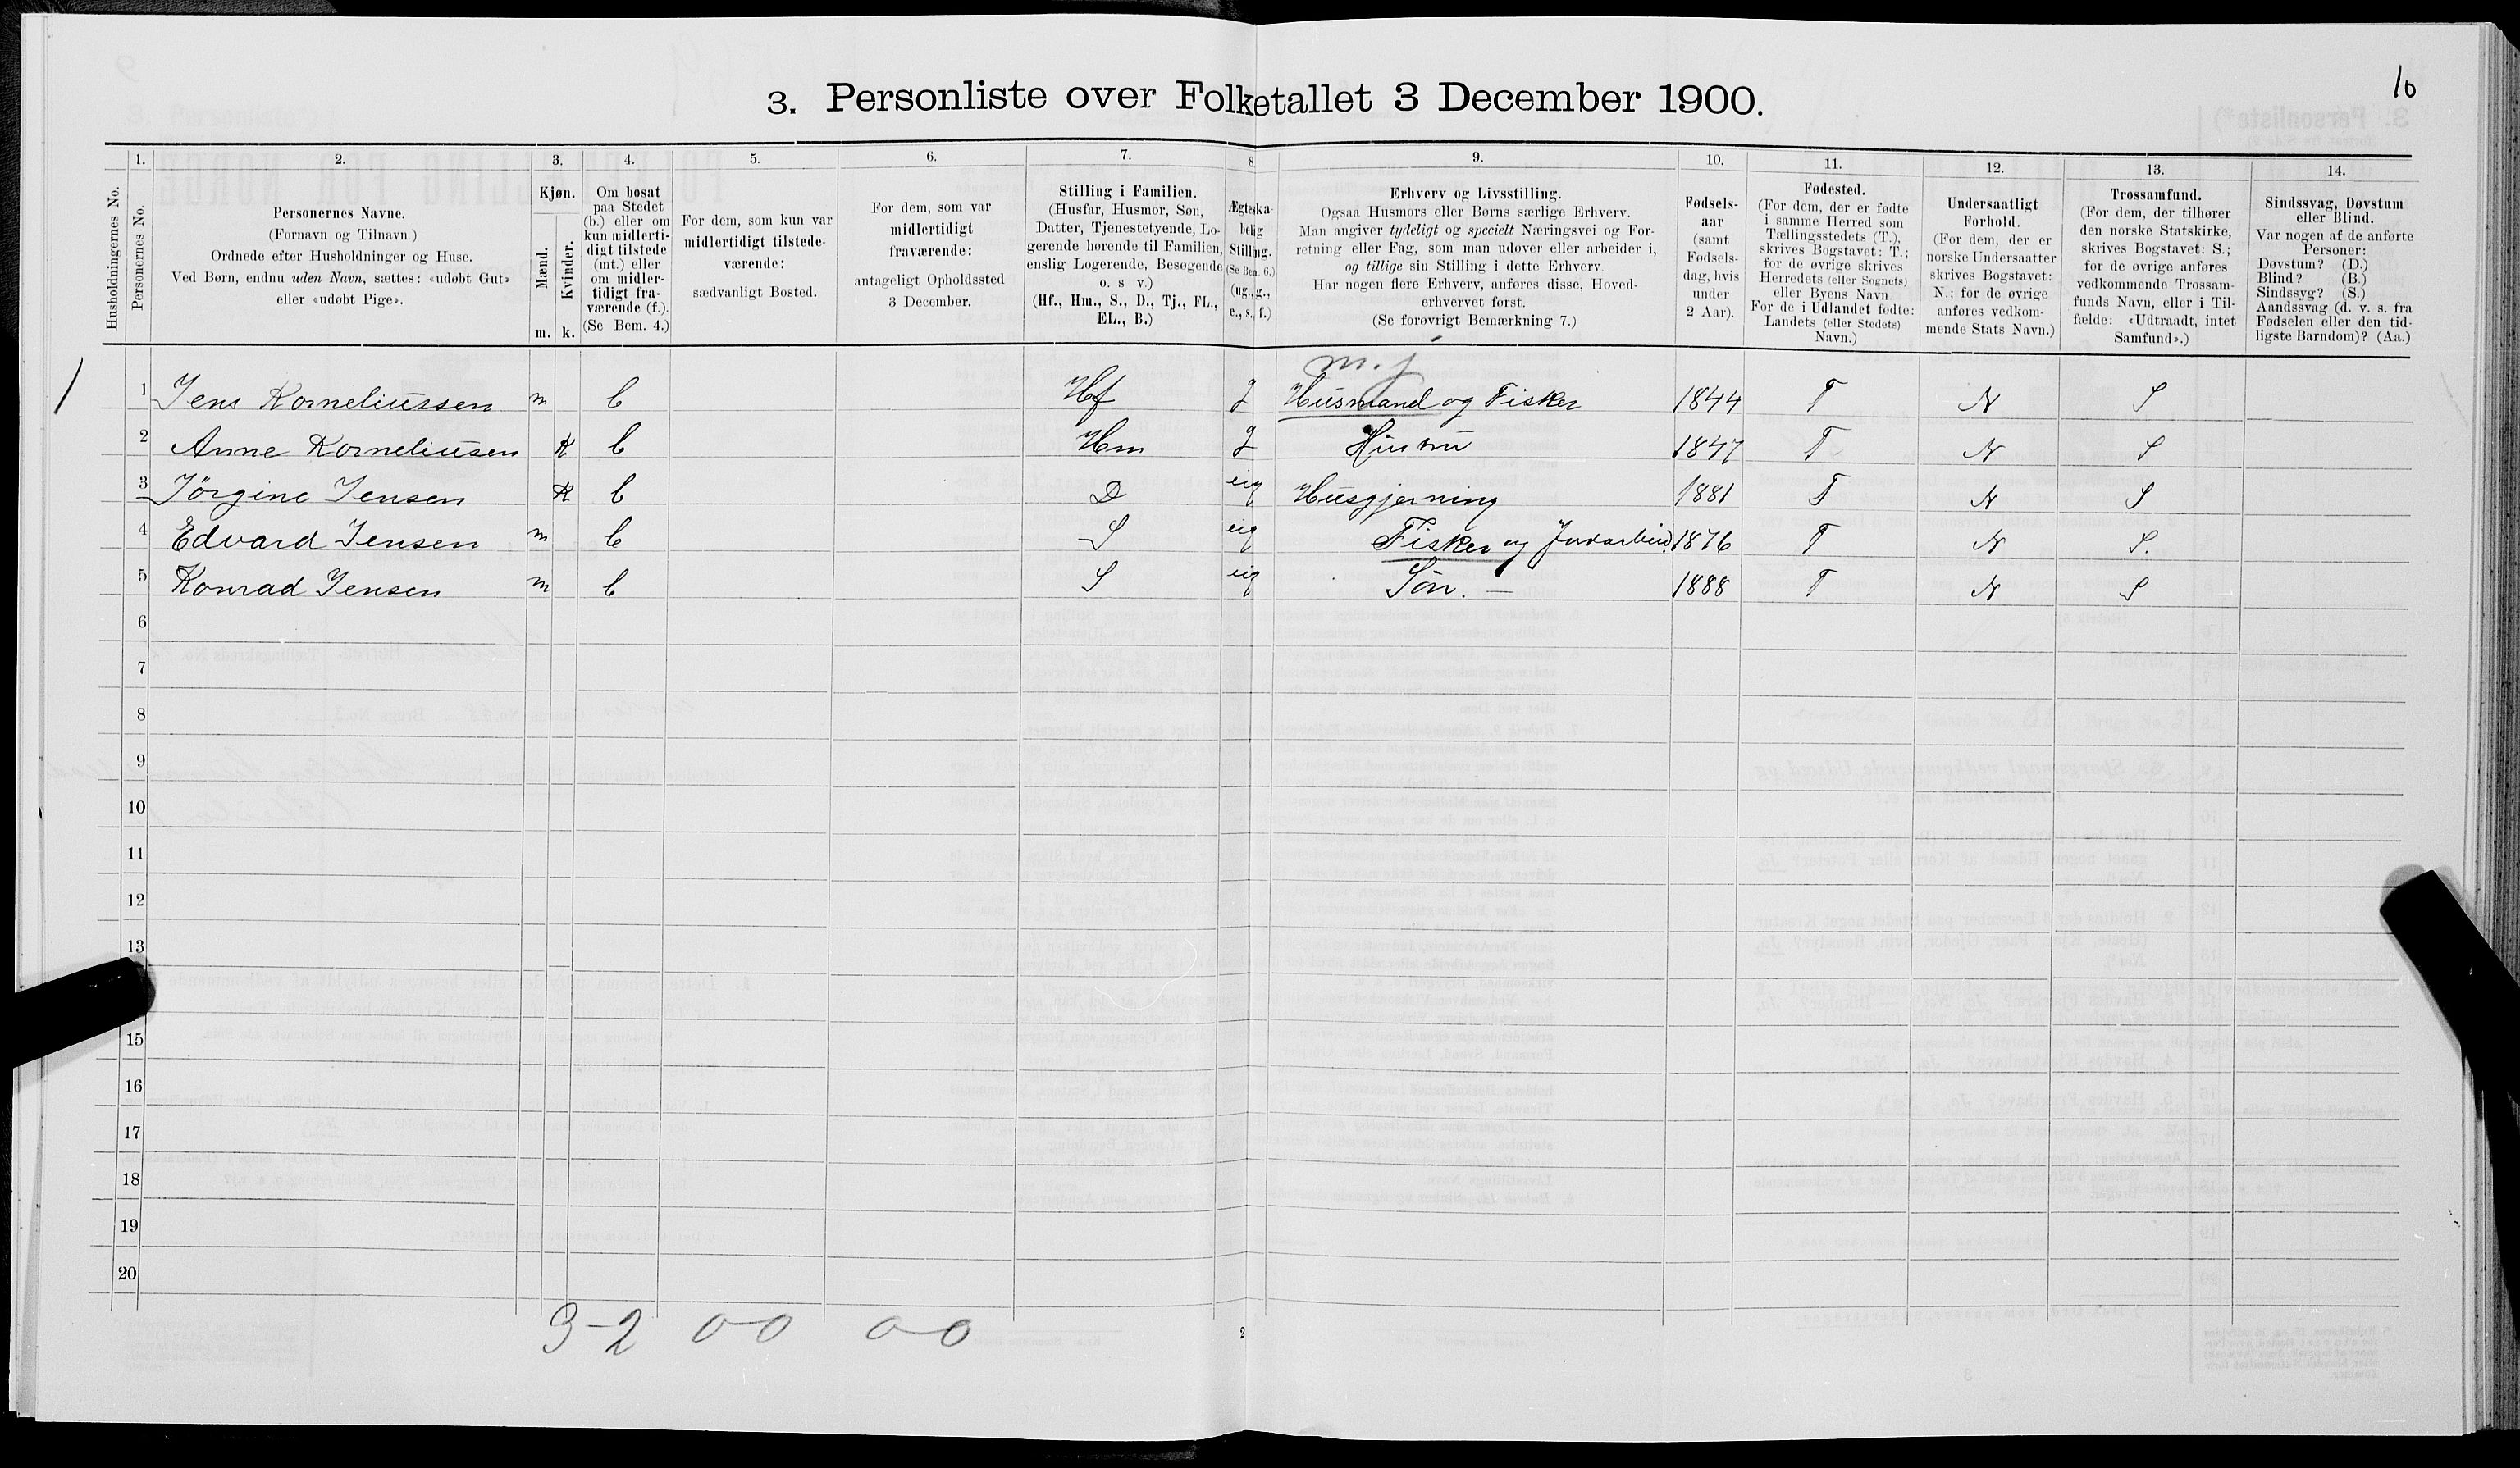 10
3. Personliste over Folketallet 3 December 1900.
Husholdningernes No.
1.
Personernes No.
2.
Personernes Navne.
(Fornavn og Tilnavn)
Ordnede efter Husholdninger og Huse.
Ved Børn, endnu uden Navn, sættes: «udøbt Gut»
eller «udøbt Pige».
3.
Kjøn.
Mænd.
Kvinder.
m. k.
4.
Om bosat
paa Stedet
(b.) eller om
kun midlerti-
digt tilstede
(mt.) eller
om midler-
tidigt fra-
værende (f.).
(Se Bem. 4.)
5.
For dem, som kun var
midlertidigt tilstede-
værende:
sædvanligt Bosted.
6.
For dem, som var
midlertidigt
fraværende:
antageligt Opholdssted
3 December.
7.
Stilling i Familien.
(Husfar, Husmor, Søn,
Datter, Tjenestetyende, Lo-
gerende hørende til Familien,
enslig Logerende, Besøgende
o. s v.)
(Hf., Hm., S., D., Tj., FL.,
EL., B.)
8.
Ægteska-
belig
Stilling.
(Se Bem. 6.)
(ug., g.,
e., s., f.)
9.
Erhverv og Livsstilling.
Ogsaa Husmors eller Børns særlige Erhverv.
Man angiver tydeligt og specielt Næringsvei og For-
retning eller Fag, som man udøver eller arbeider i,
og tillige sin Stilling i dette Erhverv.
Har nogen flere Erhverv, anføres disse, Hoved-
erhvervet først.
(Se forøvrigt Bemærkning 7.)
10.
Fødsels-
aar
(samt
Fødsels-
dag, hvis
under
2 Aar).
11.
Fødested.
(For dem, der er fødte
i samme Herred som
Tællingsstedets (T.),
skrives Bogstavet: T.;
for de øvrige skrives
Herredets (eller Sognets)
eller Byens Navn.
For de i Udlandet fødte:
Landets (eller Stedets)
Navn.)
12.
Undersaatligt
Forhold.
(For dem, der er
norske Undersaatter
skrives Bogstavet:
N.; for de øvrige
anføres vedkom-
mende Stats Navn.)
13.
Trossamfund.
(For dem, der tilhører
den norske Statskirke,
skrives Bogstavet: S.;
for de øvrige anføres
vedkommende Trossam-
funds Navn, eller i Til-
fælde: «Udtraadt, intet
Samfund».)
14.
Sindssvag, Døvstum
eller Blind.
Var nogen af de anførte
Personer:
Døvstum? (D.)
Blind? (B.)
Sindssyg? (S.)
Aandssvag (d. v. s. fra
Fødselen eller den tid-
ligste Barndom)? (Aa.)
m. j
1 1 Jens Korneliussen m b Hf g Husmand og Fisker 1844 T N S
2 Anne Korneliusen K b Hm g Hustru 1847 T N S
3 Jörgine Jensen K b D ug Husgjerning 1881 T N S
4 Edvard Jensen m b S ug Fisker og Jordarbeid. 1876 T N S.
5 Konrad Jensen m b S ug Sön. — 1888 T N S
6
7
8
9
10
11
12
13
15
16
17
18
19
20
3-2 0-0 0-0
2